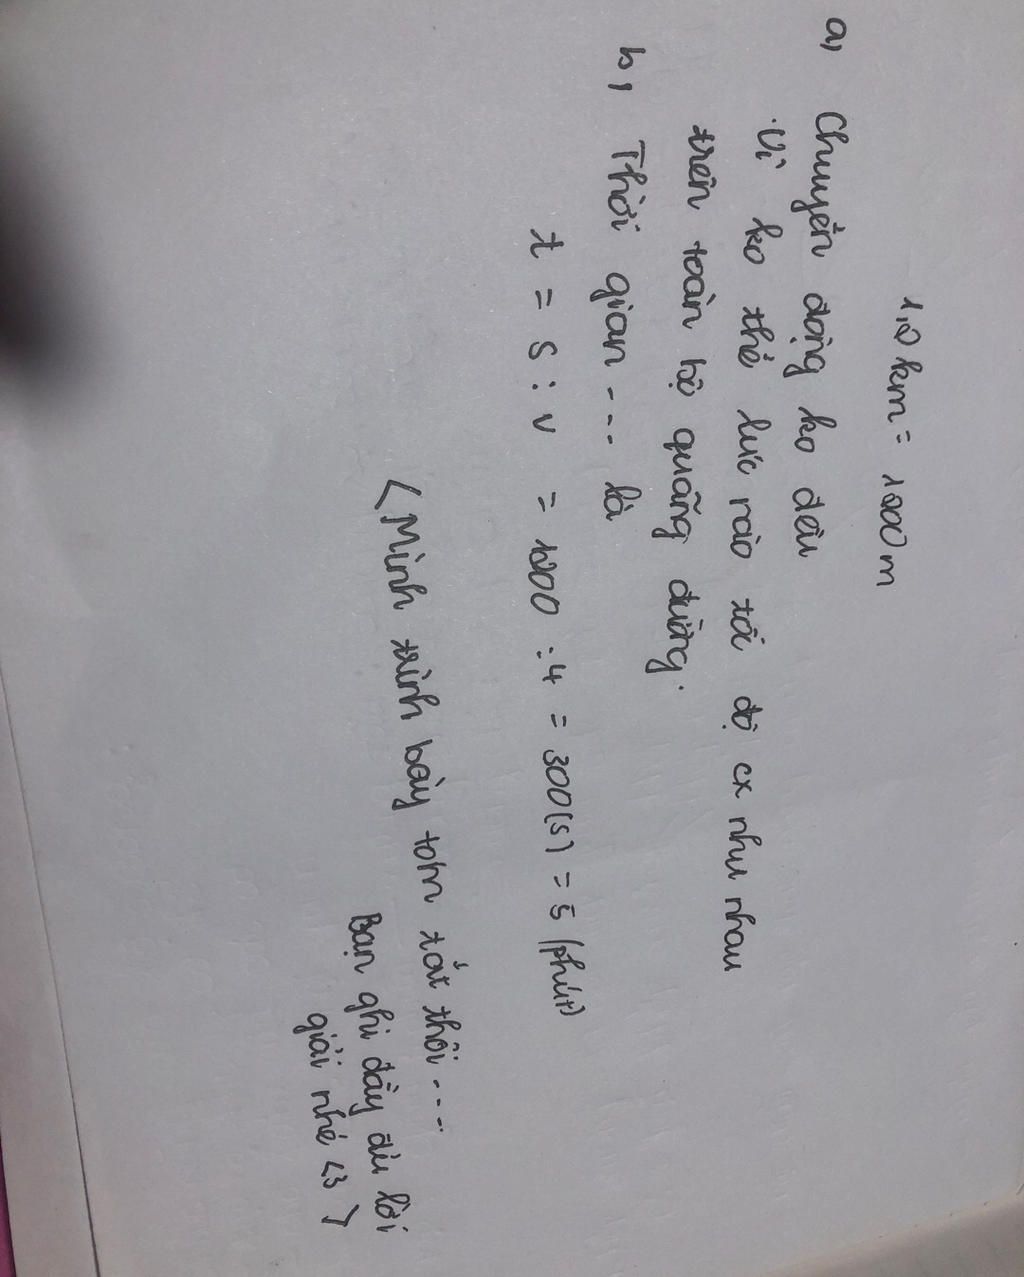 1,2 km = 1200 m
a, Chuyển động ko đều
. Vì ko thể lúc nào tốc độ cx như nhau
trên toàn bộ quãng đường.
b, Thời gian --- là
t = s : v = 1200 : 4 = 300(s) = 5 (phút)
<Mình trình bày tóm tắt thôi....
Bạn ghi đầy đủ lời
giải nhé <3 >